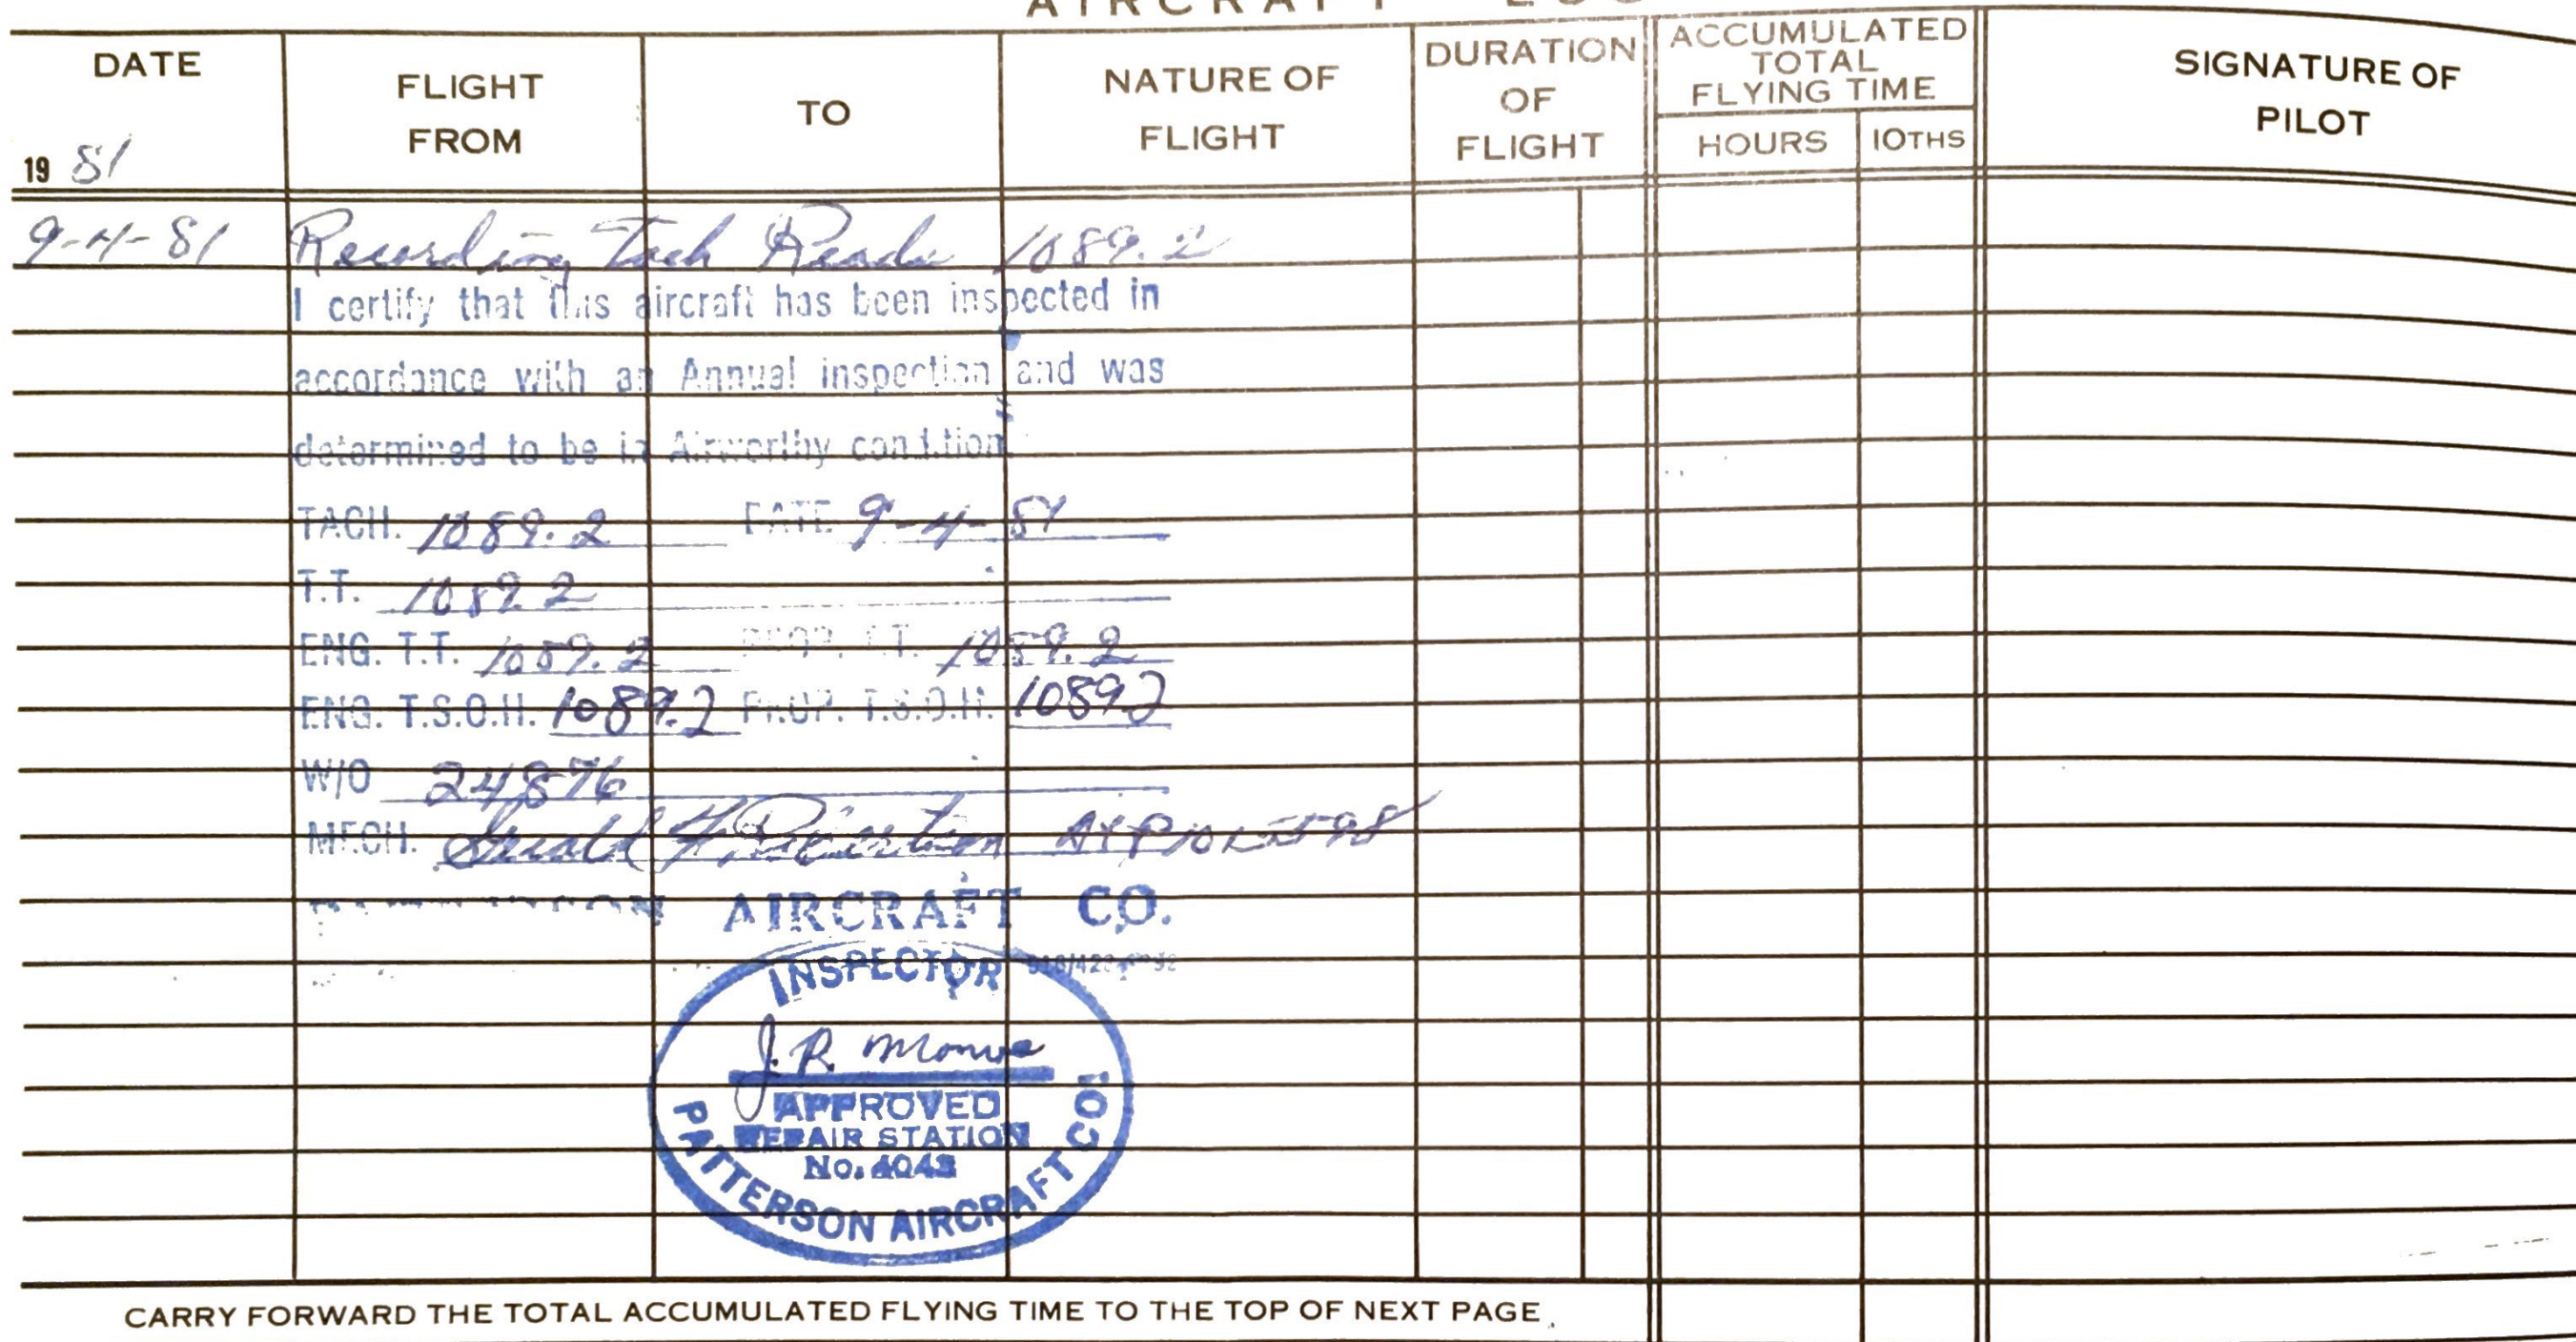 AIRCRAFT
DATE
FLIGHT FROM
TO
NATURE OF FLIGHT
DURATION OF FLIGHT
ACCUMULATED TOTAL FLYING TIME
HOURS
10THS
SIGNATURE OF PILOT
19 81
9-4-81 Recording Tach Reads 1089.2
I certify that this aircraft has been inspected in
accordance with an Annual inspection and was
determined to be in Airworthy condition
TACH. 1089.2 DATE 9-4-81
T.T. 1089.2
ENG. T.T. 1089.2 PROP. T.T. 1089.2
ENG. T.S.O.H. 1089.2 PROP. T.S.O.H. 1089.2
W/O 24876
MECH.
AIRCRAFT CO.
INSPECTOR
J. R.
APPROVED
REPAIR STATION
No. 4043
PATTERSON AIRCRAFT CO.
CARRY FORWARD THE TOTAL ACCUMULATED FLYING TIME TO THE TOP OF NEXT PAGE